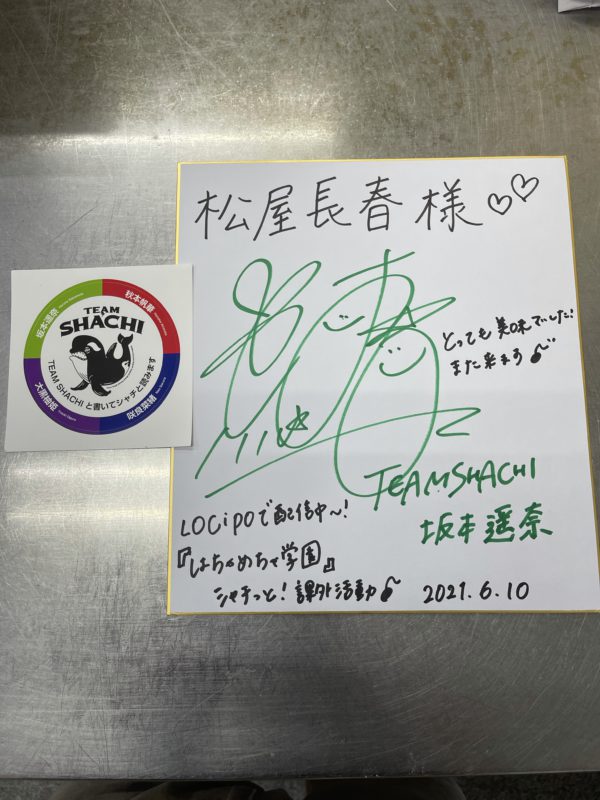 松屋長春様♡♡
とっても美味でした!
また来ます♪
TEAMSHACHI
坂本遥奈
LOCiPOで配信中〜!
『はちゃめちゃ学園』
シャチっと!課外活動♪
2021.6.10
TEAM
SHACHI
坂本遥奈
秋本帆華
大黒柚姫
咲良菜緒
TEAM SHACHI と書いてシャチと読みます